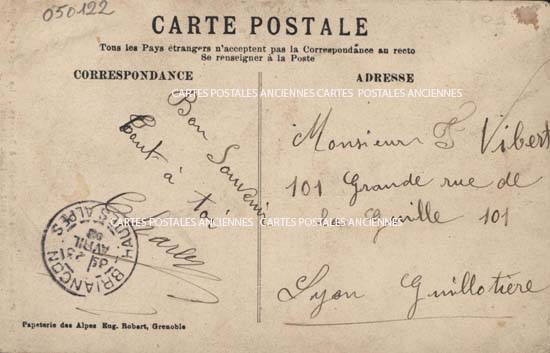 050122
CARTE POSTALE
Tous les Pays étrangers n'acceptent pas la Correspondance au recto
Se renseigner à la Poste
CORRESPONDANCE
ADRESSE
CARTES POSTALES ANCIENNES CARTES POSTALES ANCIENNES
Bon Souvenir
tout à toi
Charles
Monsieur F Vibert
101 Grande rue de
la Guille 101
Lyon Guillotière
CARTES POSTALES ANCIENNES CARTES POSTALES ANCIENNES
BRIANÇON
HAUTES ALPES
AVRIL
Papeterie des Alpes Eug. Robert, Grenoble